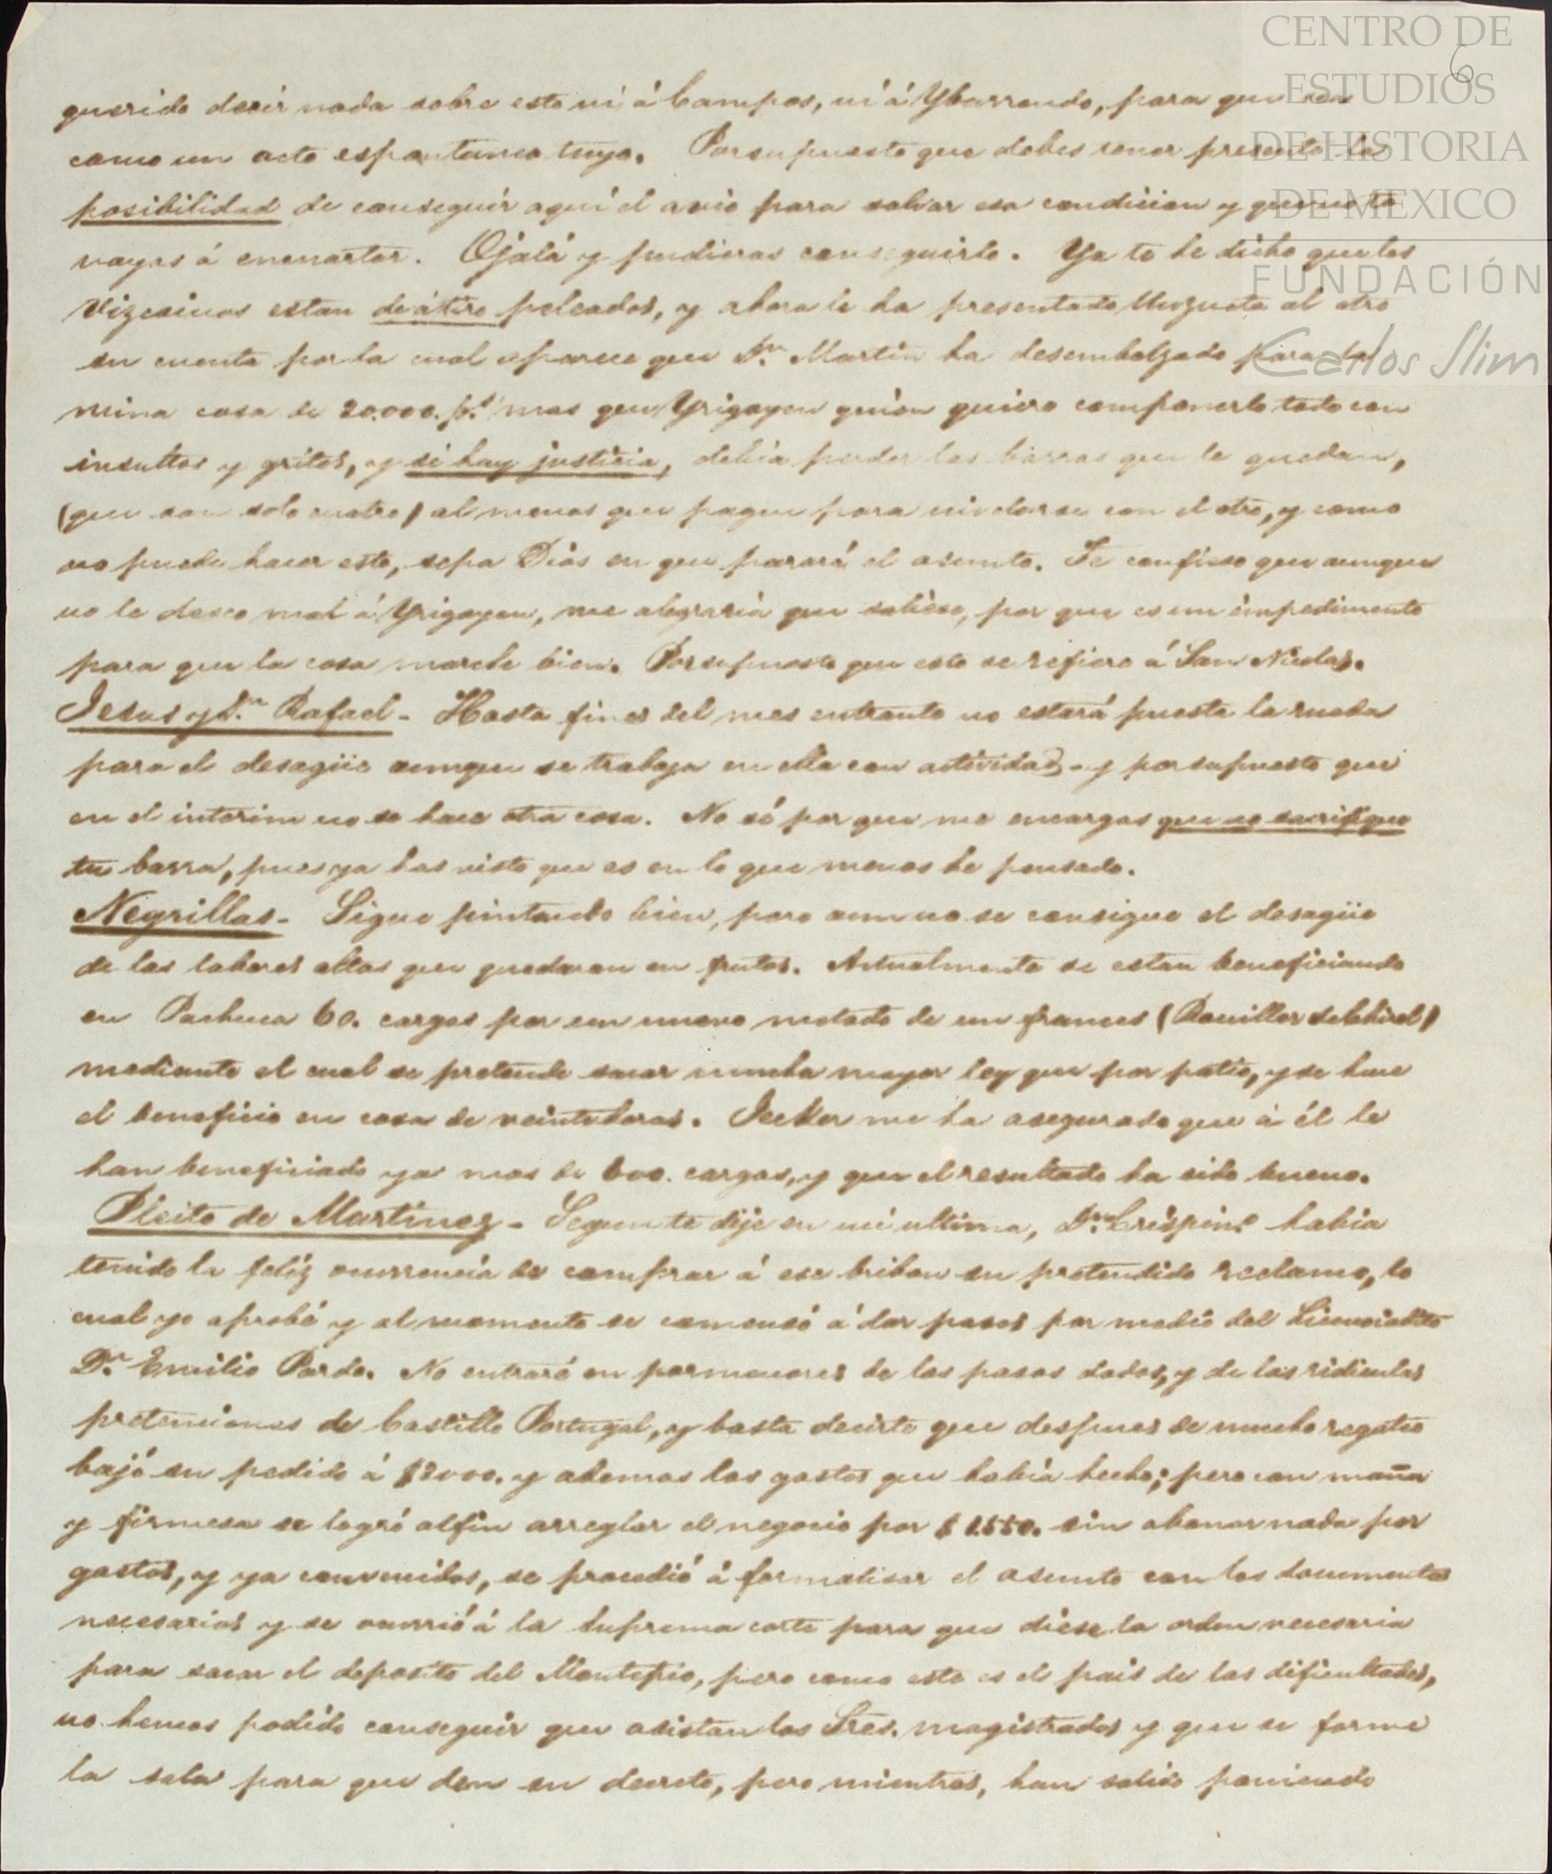 CENTRO DE
ESTUDIOS
DE HISTORIA
DE MEXICO
FUNDACIÓN
Carlos Slim
6
querido decir nada sobre esto ni á Campos, ni á Ybarrondo, para que sea
como un acto espontaneo tuyo. Porsupuesto que debes tener presente la
posibilidad de conseguir aquí el avio para salvar esa condicion y que no te
vayas á encuartar. Ojalá y pudieras conseguirlo. Ya te he dicho que los
Vizcainos estan de átiro peleados, y ahora le ha presentado al otro
su cuenta por la cual aparece que Dn. Martin ha desembolzado para la
mina cosa de 20.000. ps. mas que Yrigoyen quien quiere componerlo todo con
insultos y gritos, y si hay justicia, debia perder las barras que le quedan,
(que son solo cuatro) al menos que pague para nivelarse con el otro, y como
no puede hacer esto, sepa Dios en que parará el asunto. Te confieso que aunque
no le deseo mal á Yrigoyen, me alegraria que saliese, por que es un impedimento
para que la cosa marche bien. Porsupuesto que esto se refiere á San Nicolas.
Jesus y Dn. Rafael - Hasta fines del mes entrante no estará puesta la rueda
para el desagüe aunque se trabaja en ella con actividad - y porsupuesto que
en el interim no se hace otra cosa. No sé por que me encargas que no sacrifique
tu barra, pues ya has visto que es en lo que menos he pensado.
Negrillas - Sigue pintando bien, pero aun no se consigue el desagüe
de las labores altas que quedaron en frutos. Actualmente se estan beneficiando
en Pachuca 60. cargas por un nuevo metodo de un frances (
mediante el cual se pretende sacar mucha mayor ley que por patio, y se hace
el beneficio en cosa de veinte horas. Jecker me ha asegurado que á él le
han beneficiado ya mas de 600. cargas, y que el resultado ha sido bueno.
Pleito de Martinez - Segun te dije en mi ultima, Dn. Crispin habia
tenido la feliz ocurrencia de comprar á ese bribon su pretendido reclamo, lo
cual yo aprobé y al momento se comensó á dar pasos por medio del Licenciadito
Dn. Emilio Pardo. No entraré en pormenores de los pasos dados, y de las ridiculas
pretenciones de Castillo Portugal, y basta decirte que despues de mucho regateo
bajó su pedido á $2000. y ademas los gastos que habia hecho; pero con maña
y firmesa se logró alfin arreglar el negocio por $1.550. sin abonar nada por
gastos, y ya convenidos, se procedió á formalisar el asunto con los documentos
necesarios y se ocurrió á la Suprema corte para que diese la orden necesaria
para sacar el deposito del Montepio, pero como este es el pais de las dificultades,
no hemos podido conseguir que asistan los Sres. magistrados y que se forme
la sala para que den su decreto, pero mientras, han salido poniendo